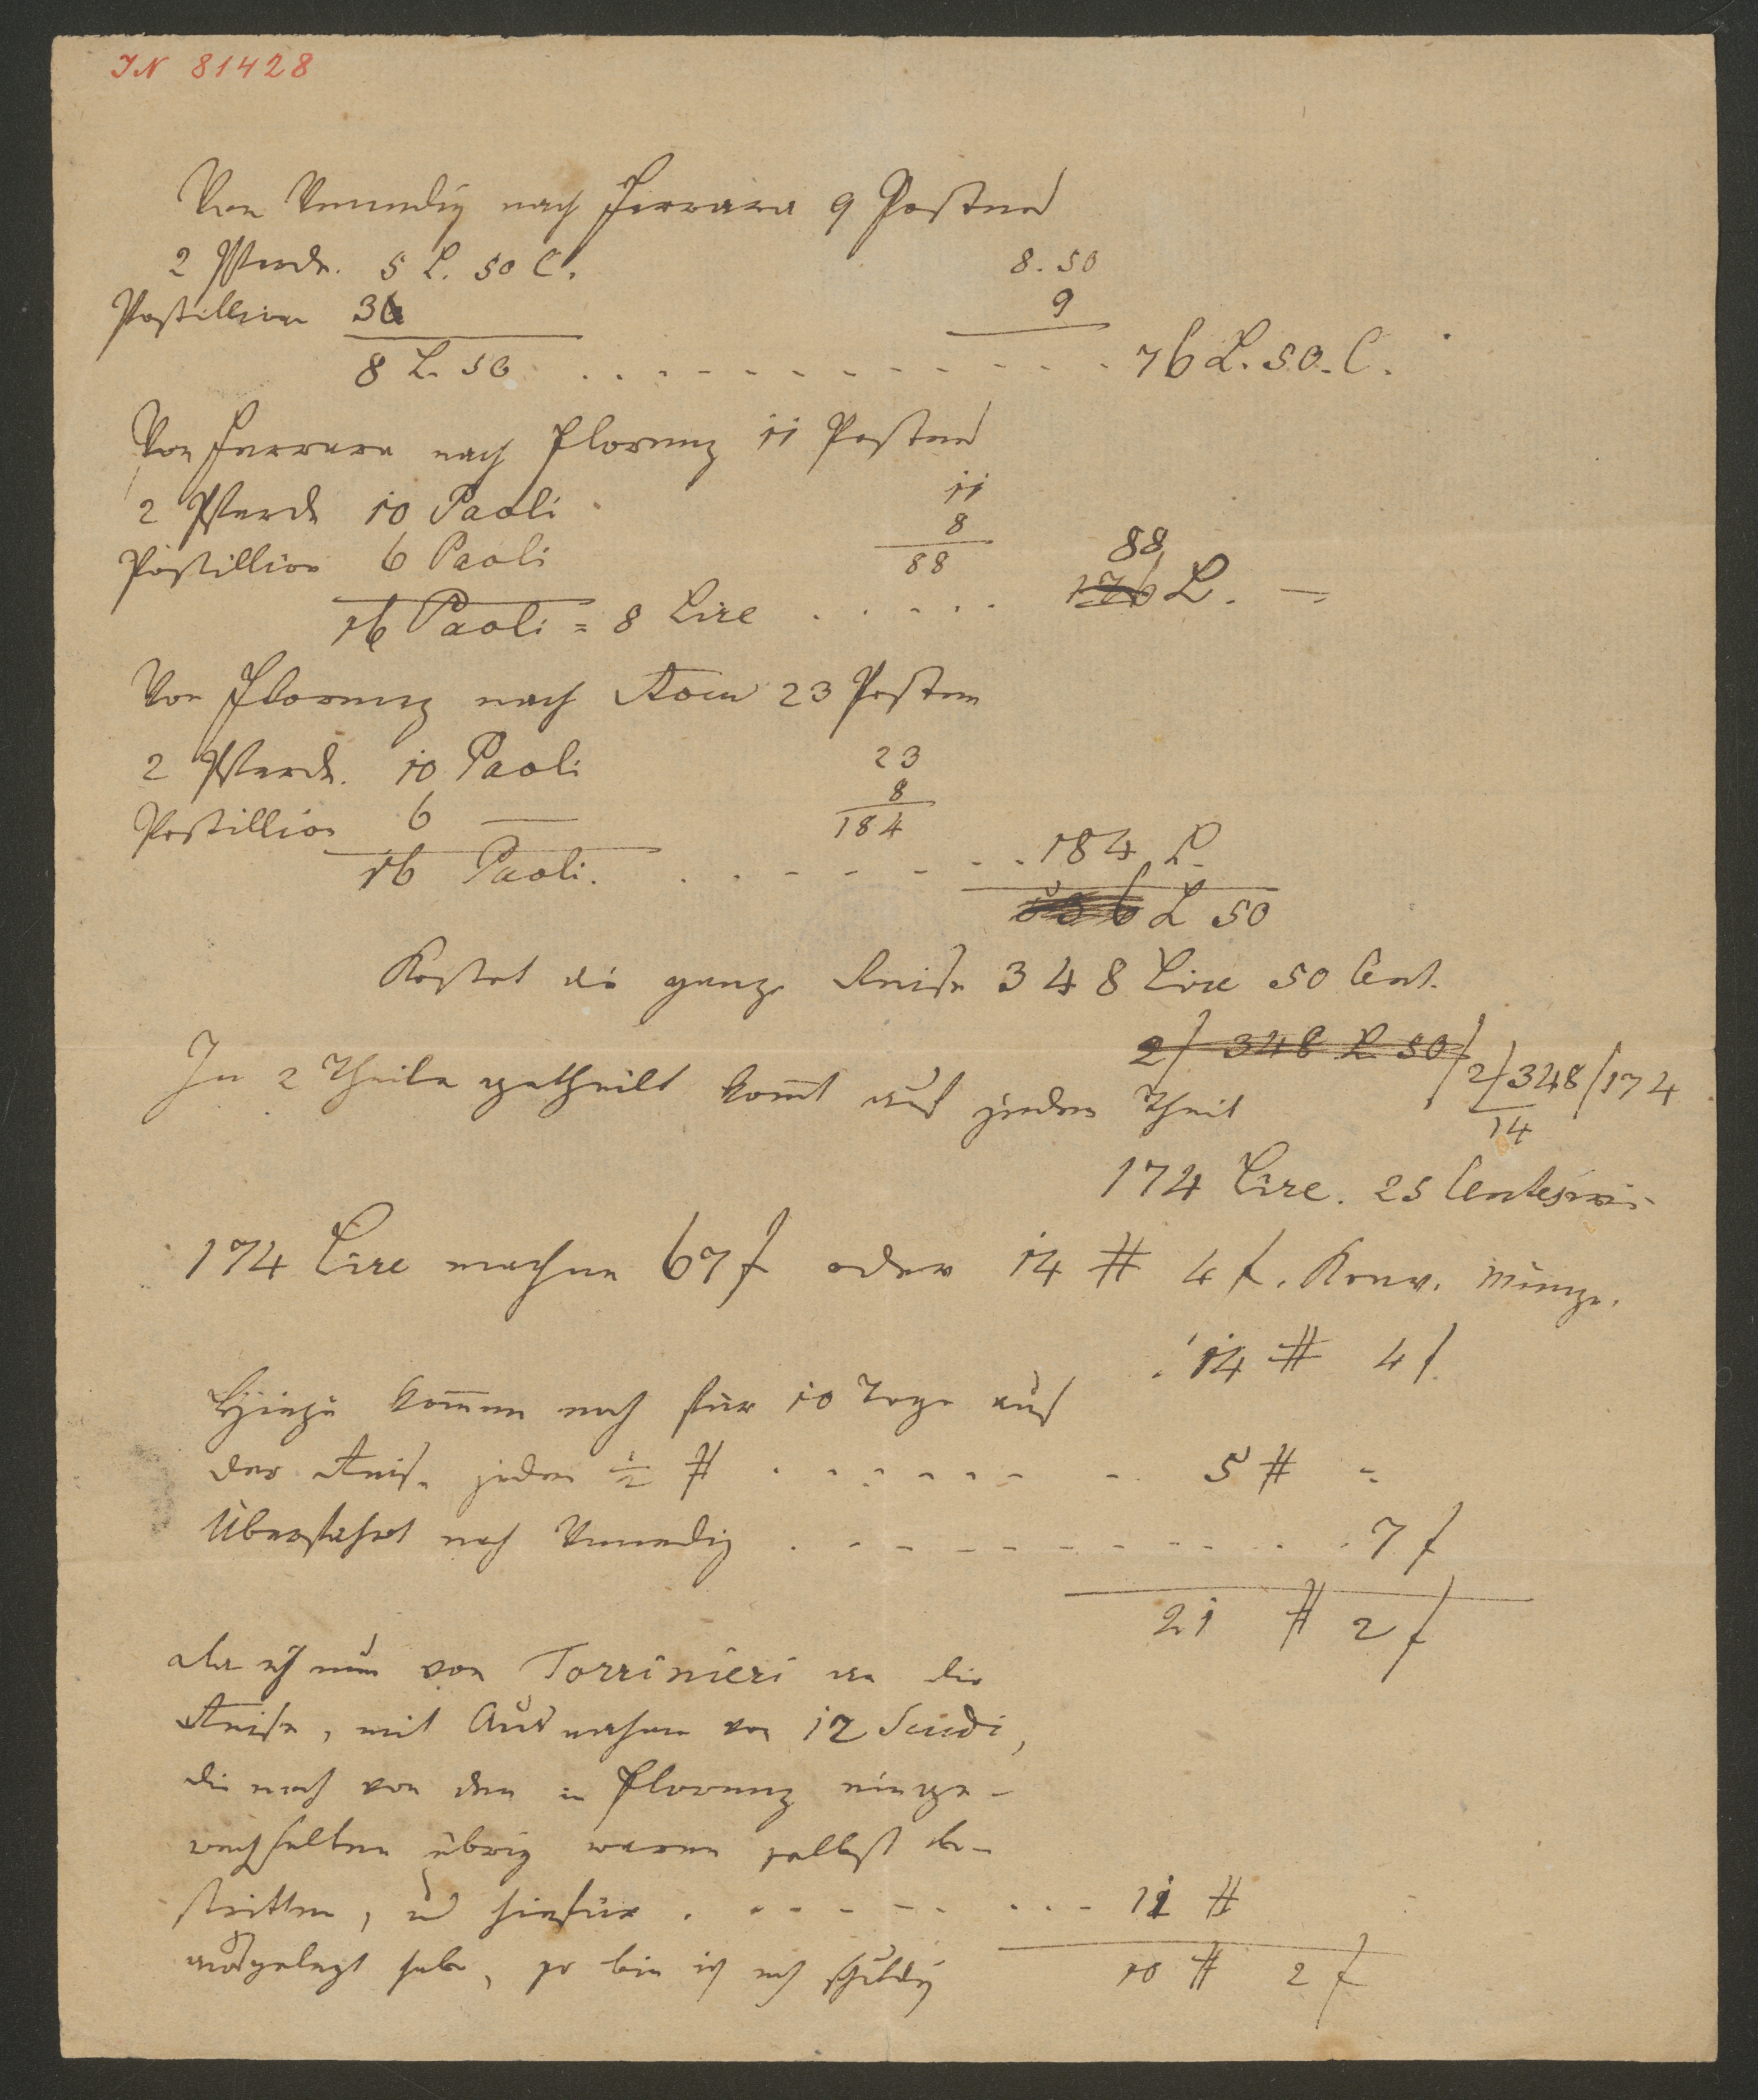 IN 81428
Von Venedig nach Ferrara 9 Posten
2 Pferde. 5 L. 50 C. 8. 50
Postillion 3 9
8 L. 50 . . . . . . . . . . . . 76 L. 50. C.
Von Ferrara nach Florenz 11 Posten
2 Pferde 10 Paoli 11
Postillion 6 Paoli 8
88 88
16 Paoli = 8 Lire . . . . . 176 L. —
Von Florenz nach Rom 23 Posten
2 Pferde. 10 Paoli 23
Postillion 6 — 8
184
16 Paoli. . . . . . . . 184 L.
L 50
Kostet die ganze Reise 348 Lire 50 Cent.
2/ 348 L 50/ 2/348/174
In 2 Theile getheilt kommt auf jeden Theil 14
174 Lire. 25 Centesimi
174 Lire machen 67 f oder 14 # 4 f. Konv. Münze.
14 # 4 f.
Hiezu kommen noch für 10 Tage auf
der Reise jeden ½ # . . . . . . . . 5 # -
Überfahrt nach Venedig . . . . . . . . . . . . 7 f
21 # 2 f
ich nun von Torrinieri an die
Reise, mit Ausnahme von 12 Scudi,
die noch von den in Florenz einge-
wechselten übrig waren selbst be-
stritten, und hiefür . . . . . . . . . . 11 #
ausgelegt habe, so bin ich noch schuldig 10 # 2 f